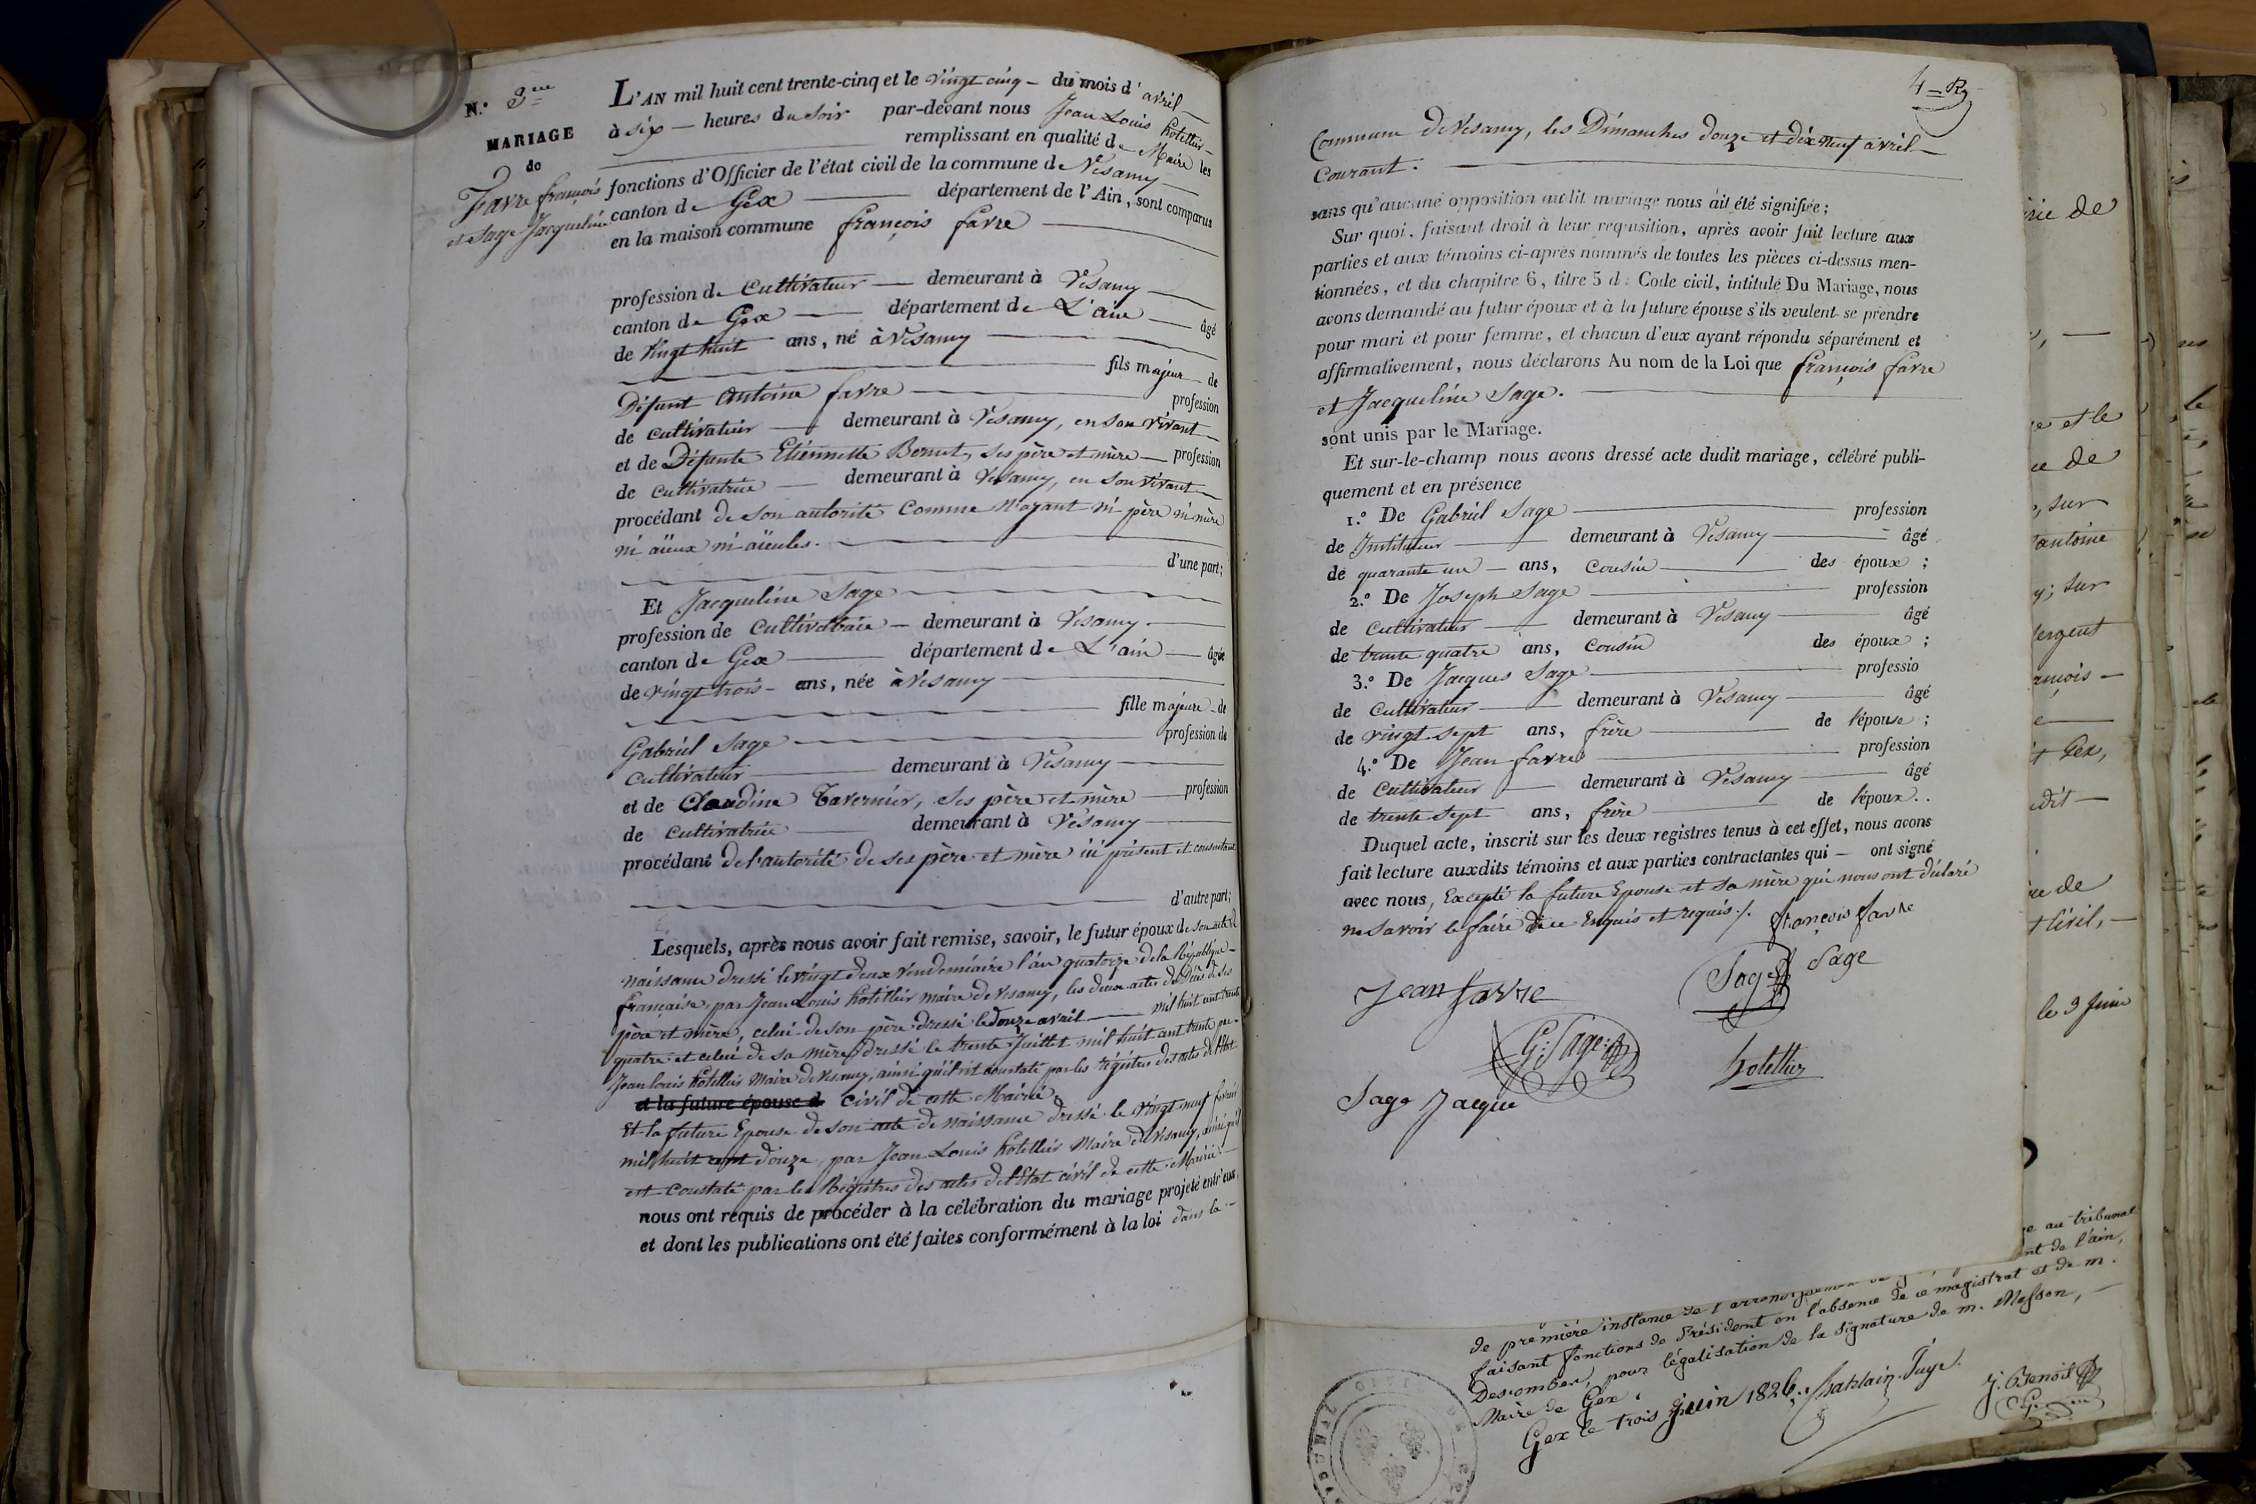 N.° 3me
MARIAGE
de
Favre François
et Sage Jacqueline
L'AN mil huit cent trente-cinq et le vingt cinq du mois d'avril
à six heures du soir par-devant nous Jean Louis hotellier
remplissant en qualité de Maire les
fonctions d'Officier de l'état civil de la commune de Vesancy
canton de Gex département de l'Ain, sont comparus
en la maison commune françois favre
profession de Cultivateur demeurant à Vesancy
canton de Gex département de L'ain âgé
de vingt huit ans, né à Vesancy
fils majeur de
Défunt Antoine favre profession
de cultivateur demeurant à Vesancy, en son vivant
et de Défunte Etiennette Bernet, ses père et mère profession
de cultivatrice demeurant à Vesancy, en son vivant
procédant de son autorité Comme n'ayant ni père ni mère
ni aïeux ni aïeules.
d'une part;
Et Jacqueline Sage
profession de Cultivatrice demeurant à Vesancy.
canton de Gex département de L'ain âgée
de vingt trois ans, née à Vesancy
fille majeure de
Gabriel Sage profession de
cultivateur demeurant à Vesancy
et de Claudine Tavernier, ses père et mère profession
de cultivatrice demeurant à Vesancy
procédant de l'autorité de ses père et mère ici présent et consentant
d'autre part;
Lesquels, après nous avoir fait remise, savoir, le futur époux de son acte de
naissance dressé le vingt deux Vendemiaire l'an quatorze de la République
française par Jean Louis hotellier maire de Vesancy, les deux actes de Décès de ses
père et mère, celui de son père dressé le douze avril mil huit cent trente
quatre et celui de sa mère dressé le trente Juillet mil huit cent trente par
Jean louis hotellier Maire de Vesancy, ainsi qu'il est constaté par les régistres des actes de l'Etat
et la future épouse d civil de cette Mairie.
Et la future Epouse de son acte de naissance dressé le vingt neuf février
mil huit cent douze, par Jean Louis hotellier Maire de Vesancy, ainsi qu'il
est constaté par les Régistres des actes de l'Etat civil de cette Mairie.
nous ont requis de procéder à la célébration du mariage projeté entr'eux,
et dont les publications ont été faites conformément à la loi dans la
4
Commune de Vesancy, les Dimanches douze et dix neuf avril
Courant.
sans qu'aucune opposition audit mariage nous ait été signifiée;
Sur quoi, faisant droit à leur requisition, après avoir fait lecture aux
parties et aux témoins ci-après nommés de toutes les pièces ci-dessus men-
tionnées, et du chapitre 6, titre 5 du Code civil, intitulé Du Mariage, nous
avons demandé au futur époux et à la future épouse s'ils veulent se prendre
pour mari et pour femme, et chacun d'eux ayant répondu séparément et
affirmativement, nous déclarons Au nom de la Loi que françois favre
et Jacqueline Sage.
sont unis par le Mariage.
Et sur-le-champ nous avons dressé acte dudit mariage, célébré publi-
quement et en présence
1.° De Gabriel Sage profession
de Instituteur demeurant à Vesancy âgé
de quarante un ans, cousin des époux;
2.° De Joseph Sage profession
de Cultivateur demeurant à Vesancy âgé
de trente quatre ans, cousin des époux;
3.° De Jacques Sage professio
de Cultivateur demeurant à Vesancy âgé
de vingt sept ans, frère de l'épouse;
4.° De Jean favre profession
de Cultivateur demeurant à Vesancy âgé
de trente sept ans, frère de l'époux.
Duquel acte, inscrit sur les deux registres tenus à cet effet, nous avons
fait lecture auxdits témoins et aux parties contractantes qui ont signé
avec nous, Excepté la future Epouse et sa mère qui nous ont déclaré
ne savoir le faire de ce Enquis et requis./. françois favre
Jean favre Sage Sage
G: Sage hotellier
Sage Jacque
rie de
e et le
ce de
, sur
antoine
y; sur
Sergent
ançois
t Gex,
udit
ire de
t Civil,
le 3 Juin
e au tribunal
nt de l'ain,
de première instance de l'arrondissement de
faisant fonctions de Président en l'absence de ce magistrat et de m.
Descombes, pour légalisation de la signature de m. Masson,
Maire de Gex.
Gex le trois juin 1826.
J. Benoit